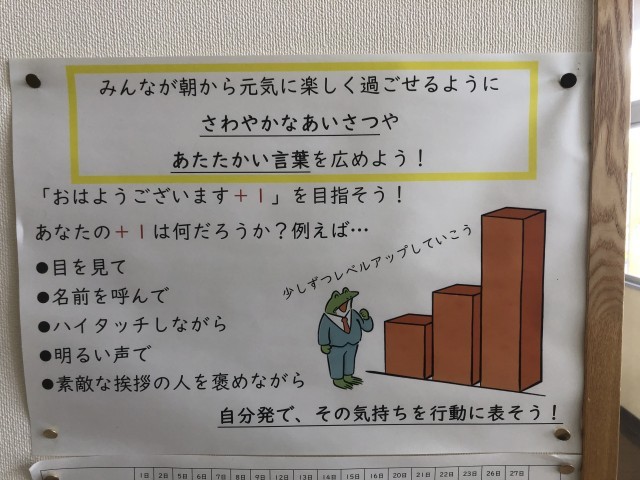 みんなが朝から元気に楽しく過ごせるように
さわやかなあいさつや
あたたかい言葉を広めよう！
「おはようございます＋１」を目指そう！
あなたの＋１は何だろうか？例えば…
●目を見て
●名前を呼んで
●ハイタッチしながら
●明るい声で
●素敵な挨拶の人を褒めながら
少しずつレベルアップしていこう
自分発で、その気持ちを行動に表そう！
1日 2日 5日 6日 7日 8日 9日 12日 13日 14日 15日 16日 20日 21日 22日 23日 26日 27日